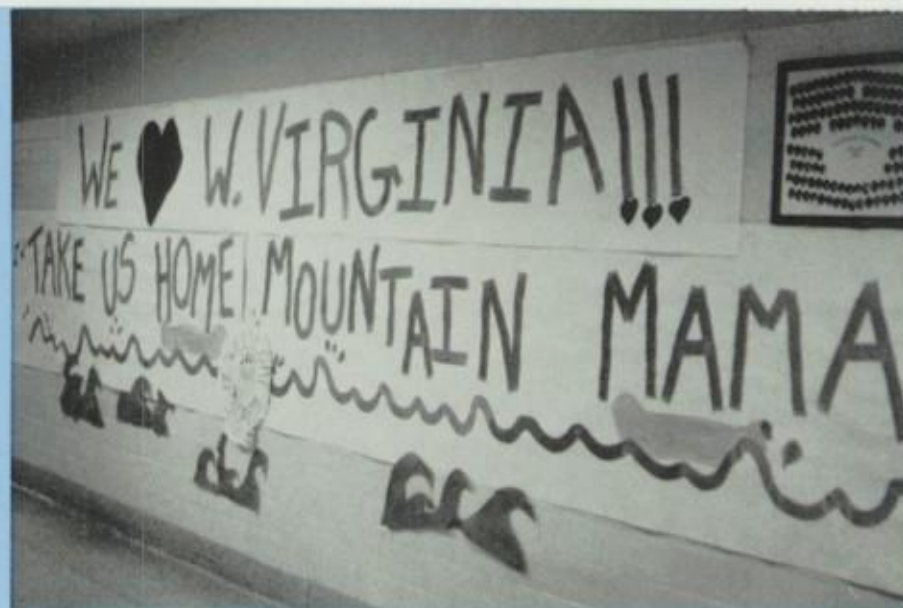 WE ♥ W. VIRGINIA!!!
TAKE US HOME MOUNTAIN MAMA